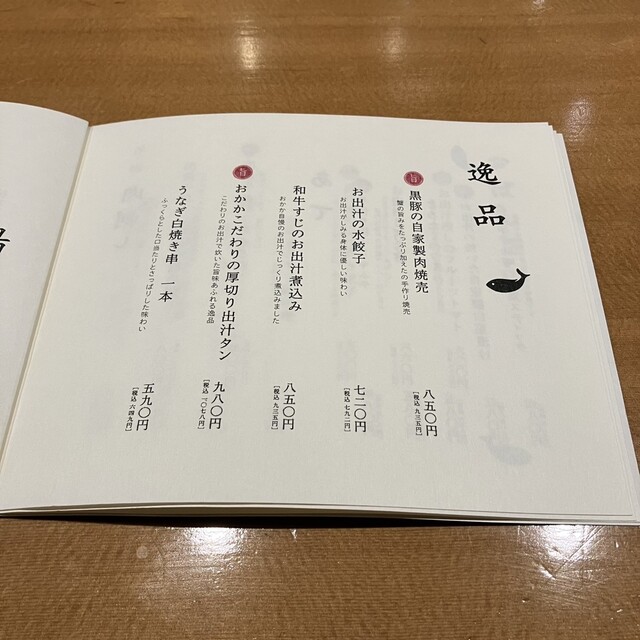 逸品
旨
黒豚の自家製肉焼売
蟹の旨みをたっぷり加えたの手作り焼売
八五〇円
[税込 九三五円]
お出汁の水餃子
お出汁がしみる身体に優しい味わい
七二〇円
[税込 七九二円]
和牛すじのお出汁煮込み
おかか自慢のお出汁でじっくり煮込みました
八五〇円
[税込 九三五円]
旨
おかかこだわりの厚切り出汁タン
こだわりのお出汁で炊いた旨味あふれる逸品
九八〇円
[税込 一〇七八円]
うなぎ白焼き串 一本
ふっくらとした口当たりとさっぱりした味わい
五九〇円
[税込 六四九円]